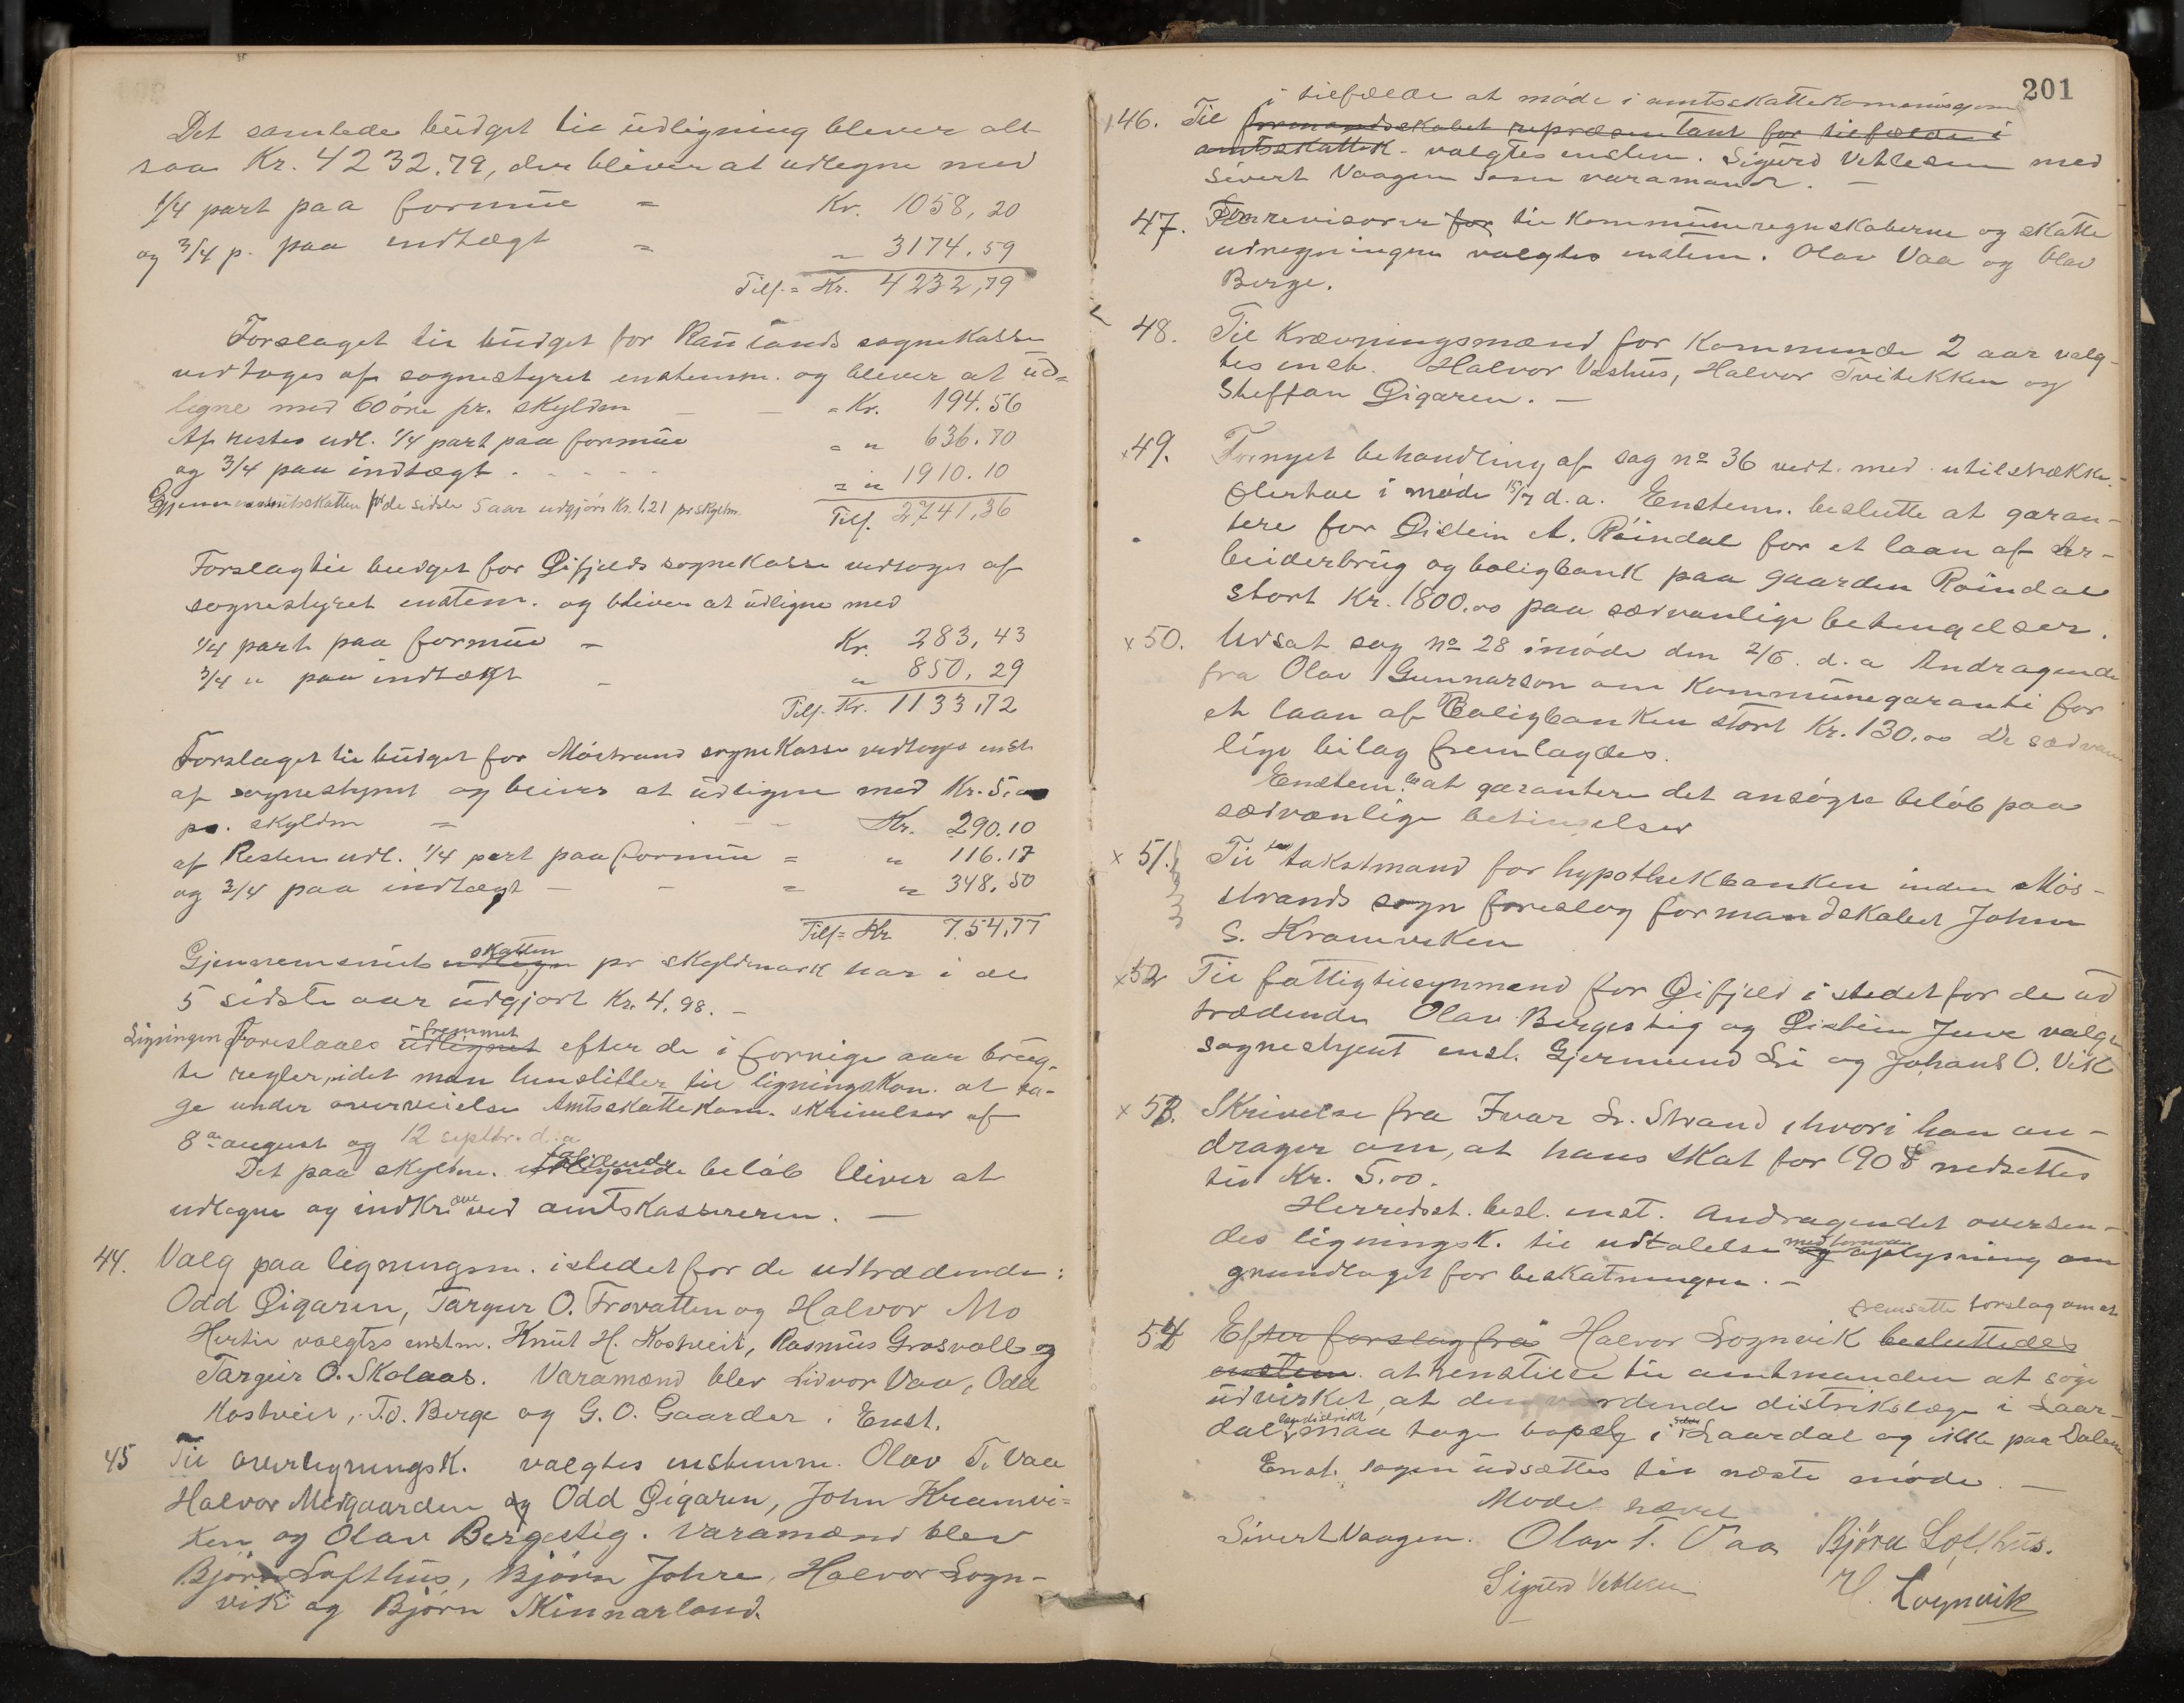 Det samlede budget til udligning bliver alt
saa Kr. 4232.79, der bliver at udlegne med
1/4 part paa formue = Kr. 1058,20
og 3/4 p. paa indtægt = " 3174.59
Tils. = Kr. 4232,79
Forslaget til budget for Raulands sognekasse
vedtoges af sognestyret enstemm. og blever at ud=
ligne med 60 øre pr. skyldm — — = Kr. 194.56
Af resten udl. 1/4 part paa formue = " 636.70
og 3/4 paa indtægt . = " 1910.10
Gjennemsnitsskatten for de sidste 5 aar udgjørs Kr. 1.21 pr skyldm. Tils. 2741,36
Forslag til budget for Øifjelds sognekasse vedtoges af
sognestyret enstem. og bliver at udligne med
1/4 part paa formue — Kr. 283,43
3/4 " paa indtægt — " 850,29
Tils. Kr. 1133,72
Forslaget til budget for Møstrand sognekasse vedtoges enst.
af sognestyret og bliver at udligne med Kr. 5,00
pr. skyldm = Kr. 290.10
af Resten udl. 1/4 part paa formue = " 116.17
og 3/4 paa indtægt — - = " 348.50
Tils = Kr 754,77
skatten
Gjennemsnits udlegn pr skyldmark har i de
5 sidste aar udgjort Kr. 4.98. —
fremmet
Ligningen Foreslaaes udlignet efter de i forrige aar brug-
te regler, idet man henstiller til ligningskom. at ta-
ge under overveielse Amtsskattekom. skrivelser af
8de august og 12 septbr. d.a
faldende
Det paa skyldm. udlignede beløb bliver at
udlegne og indkræve ved amtskassereren. —
44. Valg paa ligningsm. istedet for de udtrædende:
Odd Øigaren, Targeir O. Frovatten og Halvor Mo
Hertil valgtes enstm. Knut H. Kostveit, Rasmus Grosvoll og
Targeir O. Skalaas. Varamænd blev Lidvor Vaa, Odd
Kostveit, T.O. Berge og G. O. Gaarder. Enst.
45 Til overligningsk. valgtes enstemm. Olav T. Vaa
Halvor Midgaarden og Odd Øigaren, John Kramvi=
ken og Olav Bergestig. Varamænd blev
Bjørn Lofthus, Bjørn Johre, Halvor Logn-
vik og Bjørn Skinnarland.
201
i tilfælde at møde i amtsskattekommisjonen
46. Til formandskabet repræsentant for tilfælde i
amtsskattek. valgtes enstem. Sigurd Vehlesen med
Sivert Vaagen som varamand. —
47. Til revisorer for til kommuneregnskaberne og skatte
udregningen valgtes enstem. Olav Vaa og Olav
Berge.
48. Til Krævningsmænd for Kommunde 2 aar valg-
tes enst. Halvor Vashus, Halvor Tvitekken og
Steffan Øigaren. —
x 49. Fornyet behandling af sag no 36 vedt. med utilstrække.
flertal i møde 15/7 d.a. Enstem. beslutte at garan-
tere for Øistein A. Røindal for et laan af ar-
beiderbrug og boligbank paa gaarden Røindal
stort Kr. 1800.00 paa sædvanlige betingelser.
x 50. Udsat sag no 28 i møde den 2/6 d. a Andragende
fra Olav Gunnarson om Kommunegaranti for
et laan af Boligbanken stort Kr. 130.00 De sædvan
lige bilag fremlagdes.
Enstem. bes at garantere det ansøgte beløb paa
sædvanlige betingelser
x 51. Til takstmand for hypothekbanken inden Møs-
strands sogn foreslog formandskabet John
S. Kramviken
x 52 Til fattigtilsynmænd for Øifjeld i stedet for de ud
trædende Olav Bergestig og Øistein Juve valgte
sognestyret enst. Gjermund Li og Johans O. Vik
x 53. Skrivelse fra Ivar Sr. Strand, hvori han an-
drager om, at hans skat for 1908 nedsettes
til Kr. 5.00.
Herredsst. besl. enst. Andragendet oversen-
des ligningsk. til udtalelse og oplysning om
grundlaget for beskatningen. —
fremsatte forslag om at
54 Efter forslag fra Halvor Lognvik besluttedes
enstem. at henstille til amtmanden at søge
udvirket, at den vordende distriktslæge i Laar-
dal lægedistrikt maa tage bopælg i Laardal og ikke paa Dalen
Enst. sagen udsættes til næste møde. —
Mødet hævet
Sivert Vaagen. Olav T. Vaa Bjørn Lofthus.
Sigurd Vehlesen H. Lognvik